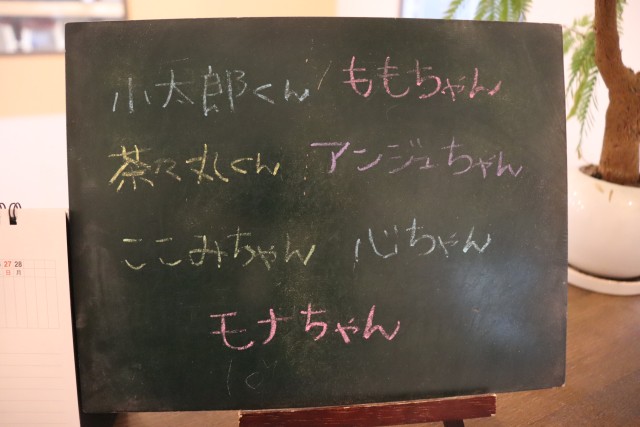 小太郎くん ももちゃん
茶々丸くん アンジュちゃん
ここみちゃん 心ちゃん
モナちゃん
27 28
日 月